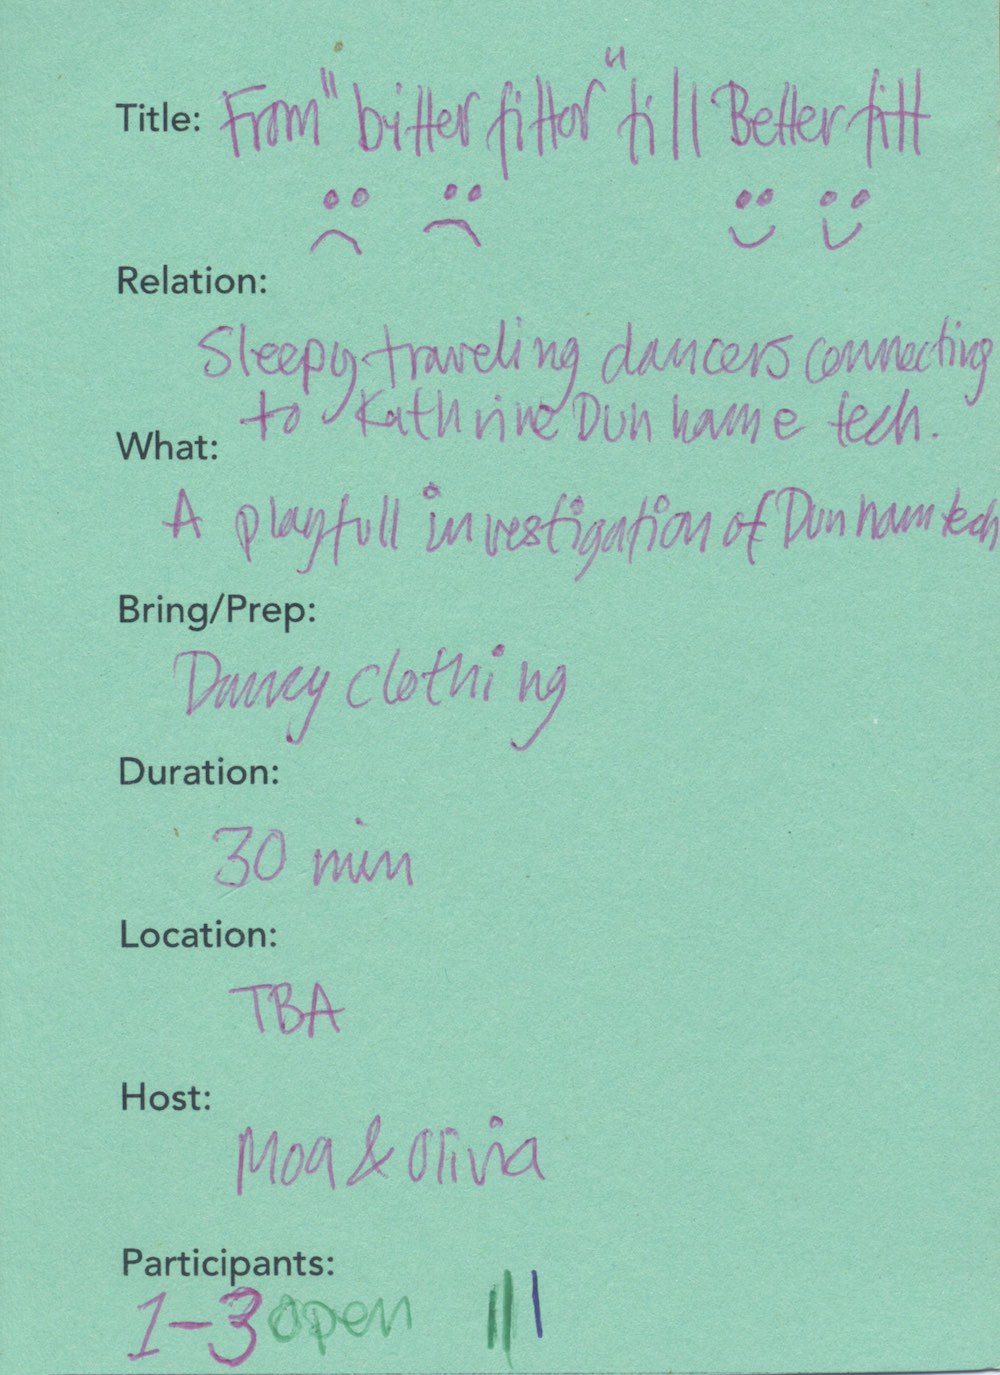 Title: From "bitter fittor" till Better fitt
Relation:
Sleepy traveling dancers connecting
to Kathrine Dunhame tech.
What:
A playfull investigation of Dunham tech
Bring/Prep:
Dancy clothing
Duration:
30 min
Location:
TBA
Host:
Moa & Olivia
Participants:
1-3 open